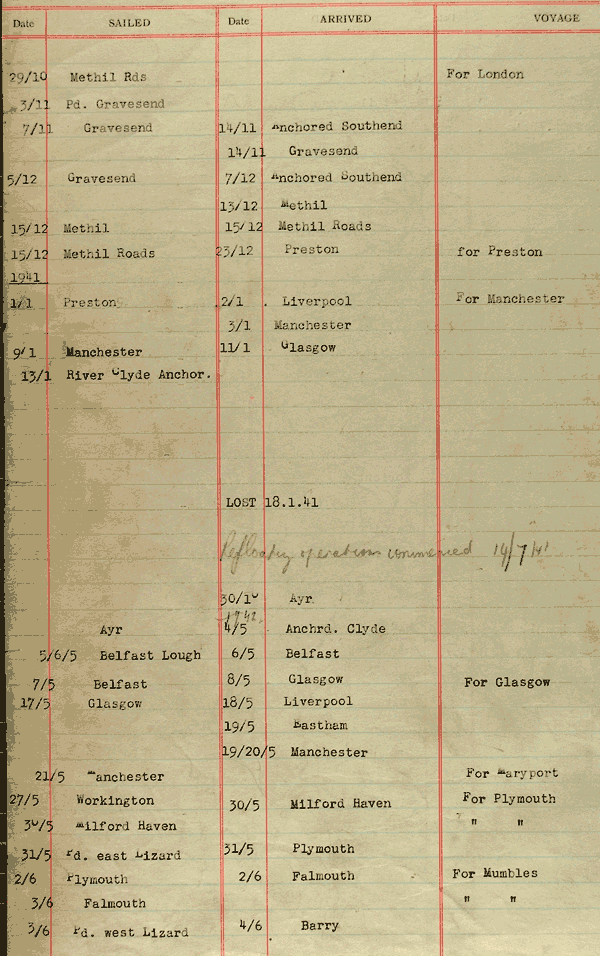 Date SAILED Date ARRIVED VOYAGE
29/10 Methil Rds For London
3/11 Pd. Gravesend
7/11 Gravesend 14/11 Anchored Southend
14/11 Gravesend
5/12 Gravesend 7/12 Anchored Southend
13/12 Methil
15/12 Methil 15/12 Methil Roads
15/12 Methil Roads 23/12 Preston for Preston
1941
1/1 Preston 2/1 . Liverpool For Manchester
3/1 Manchester
9/1 Manchester 11/1 Glasgow
13/1 River Clyde Anchor.
LOST 18.1.41
Refloating operations commenced 14/7/41
30/10 Ayr
1942
Ayr 4/5 Anchrd. Clyde
5/6/5 Belfast Lough 6/5 Belfast
7/5 Belfast 8/5 Glasgow For Glasgow
17/5 Glasgow 18/5 Liverpool
19/5 Eastham
19/20/5 Manchester
21/5 Manchester For Maryport
27/5 Workington 30/5 Milford Haven For Plymouth
30/5 Milford Haven " "
31/5 Pd. east Lizard 31/5 Plymouth
2/6 Plymouth 2/6 Falmouth For Mumbles
3/6 Falmouth " "
3/6 Pd. west Lizard 4/6 Barry